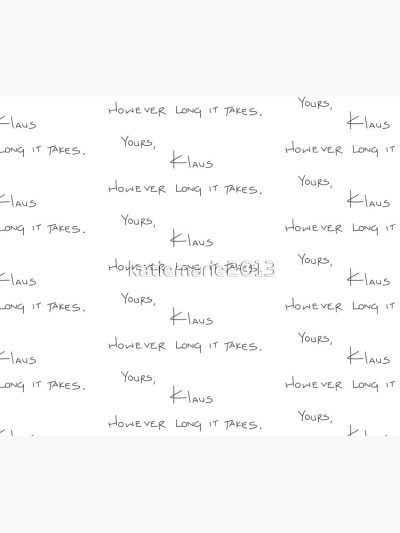 KLAUS
LONG IT TAKES.
KLAUS
LONG IT TAKES.
KLAUS
LONG IT TAKES.
KLAUS
LONG IT TAKES.
HOWEVER LONG IT TAKES.
YOURS,
KLAUS
HOWEVER LONG IT TAKES.
YOURS,
KLAUS
HOWEVER LONG IT TAKES.
katiemarie2013
YOURS,
KLAUS
HOWEVER LONG IT TAKES.
YOURS,
KLAUS
HOWEVER LONG IT TAKES.
YOURS,
KLAUS
HOWEVER LONG IT
YOURS,
KLAUS
HOWEVER LONG IT
YOURS,
KLAUS
HOWEVER LONG IT
YOURS,
KLAUS
HOWEVER LONG IT
YOURS,